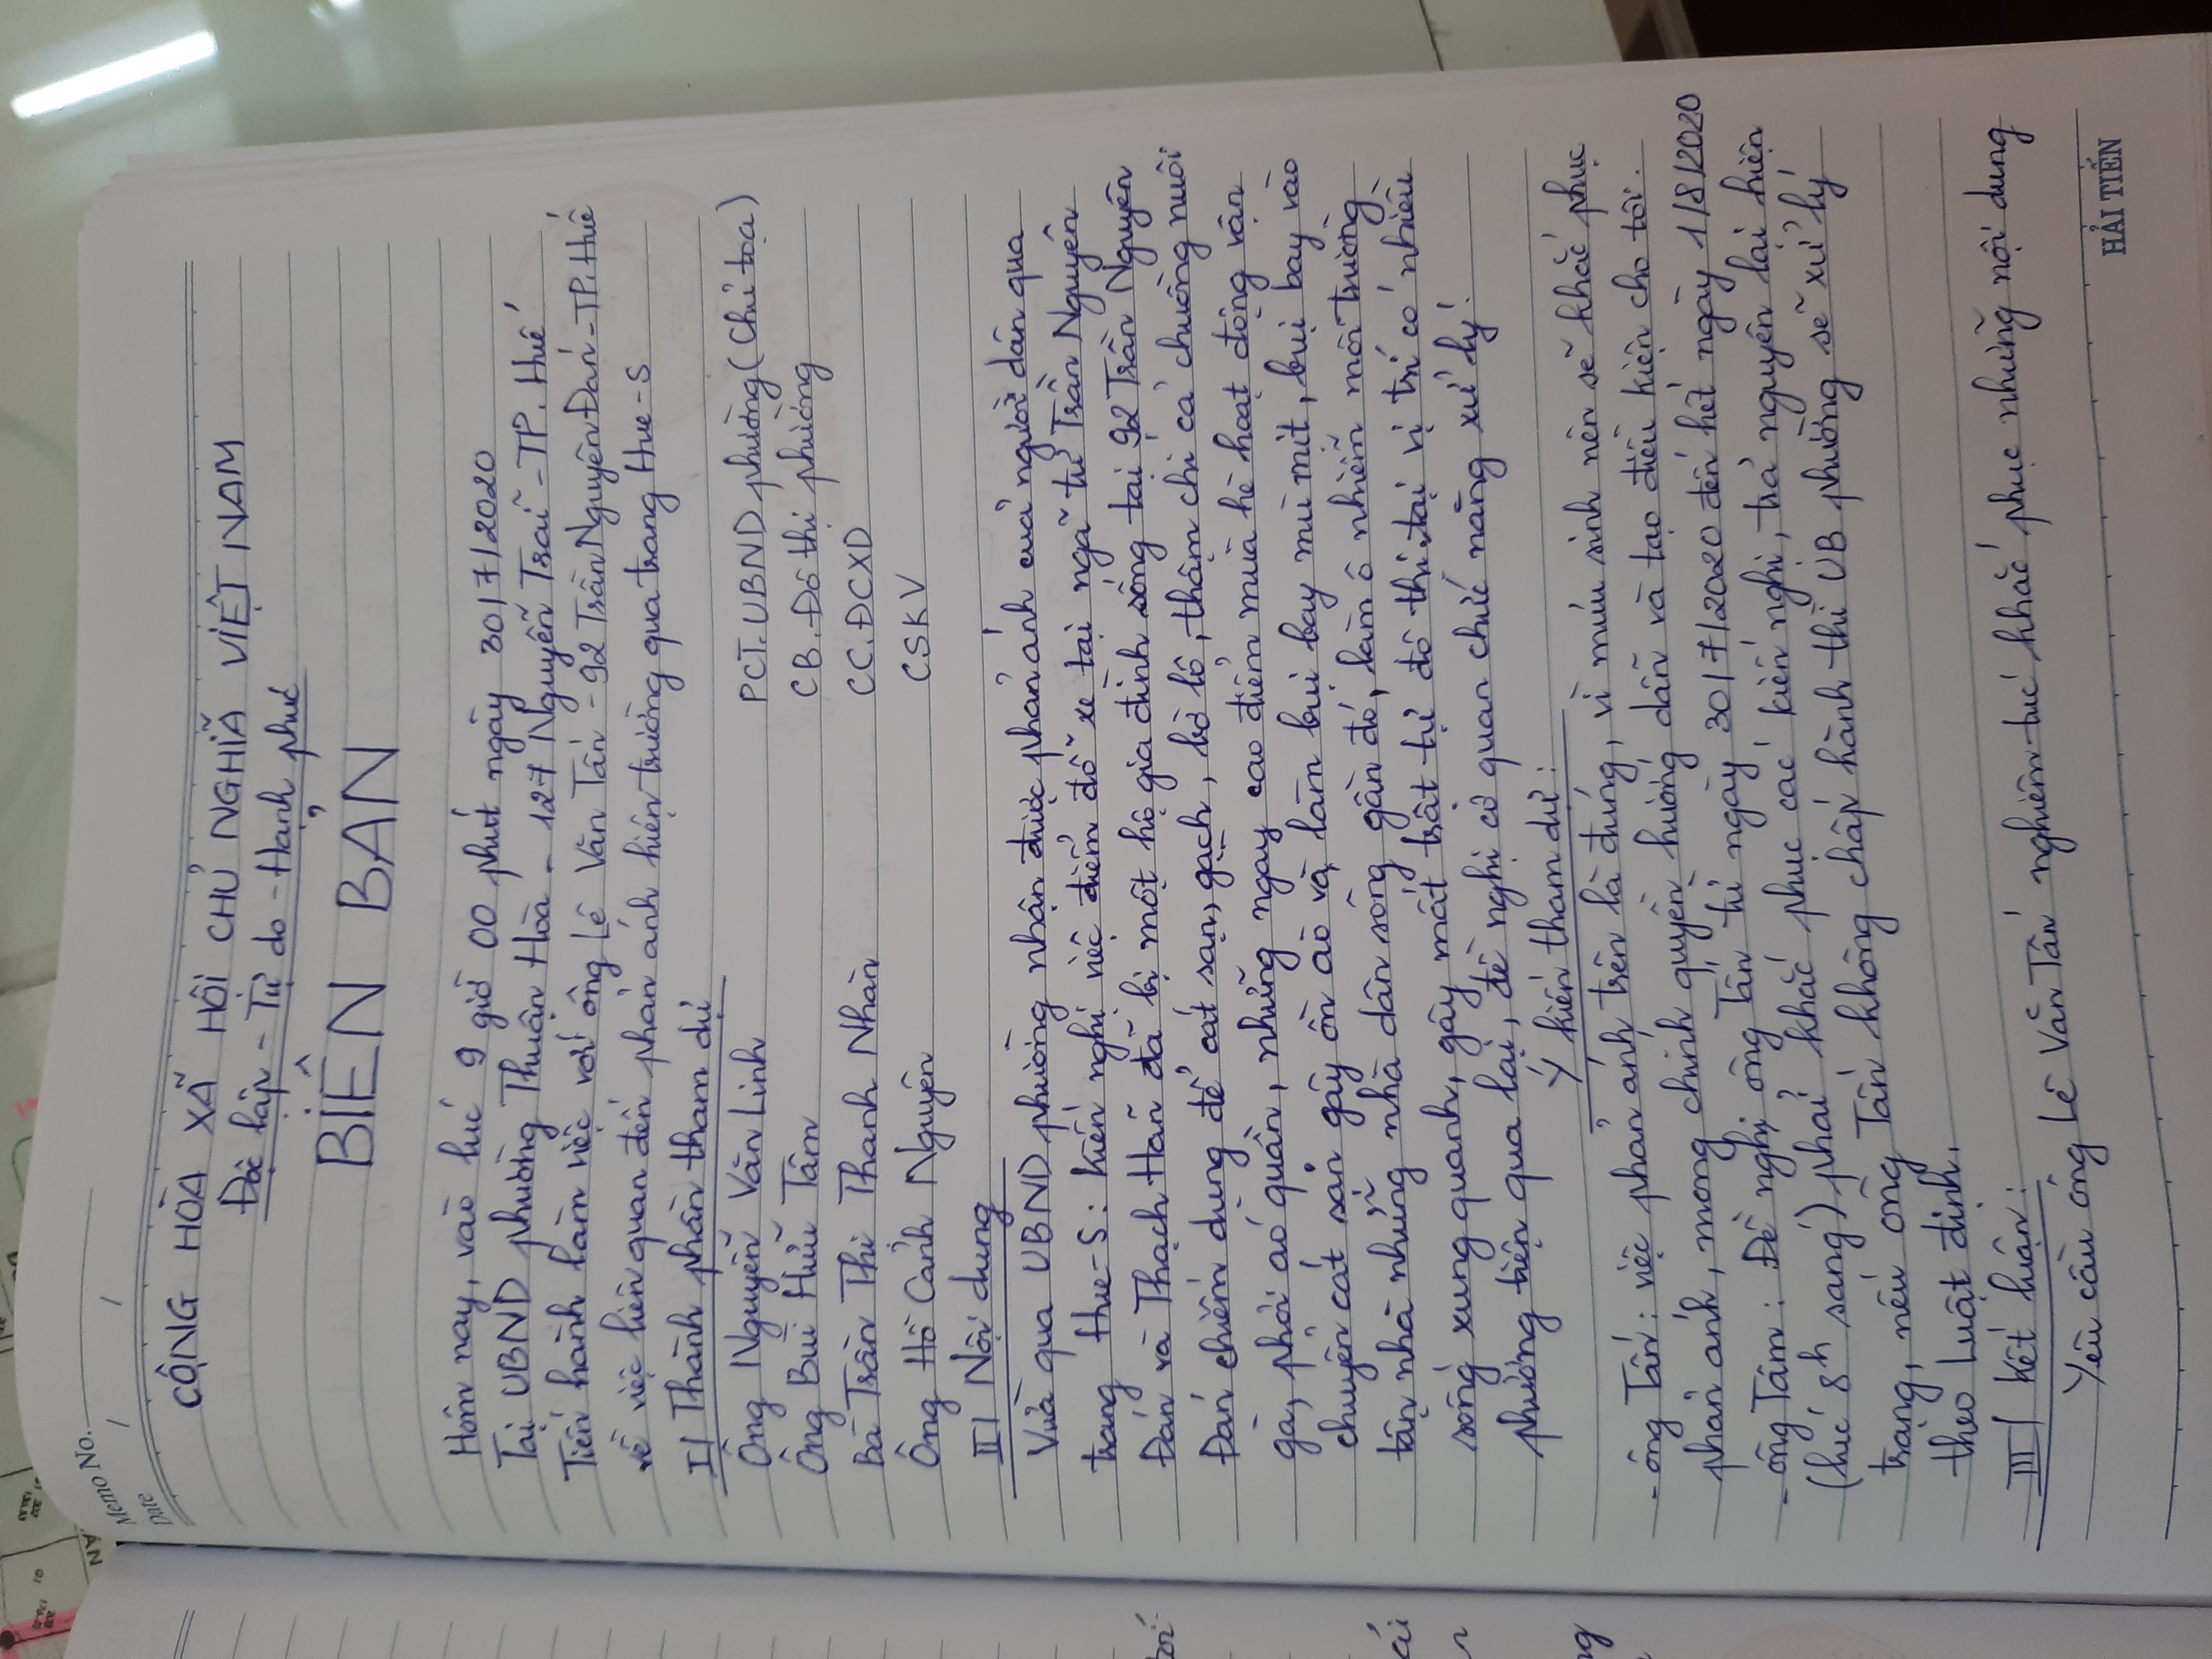 Memo No.
Date / /
CỘNG HÒA XÃ HỘI CHỦ NGHĨA VIỆT NAM
Độc lập - Tự do - Hạnh phúc
BIÊN BẢN
Hôm nay, vào lúc 9 giờ 00 phút ngày 30/7/2020
Tại UBND phường Thuận Hòa - 127 Nguyễn Trãi - TP. Huế
Tiến hành làm việc với ông Lê Văn Tấn - 92 Trần Nguyên Đán - TP. Huế
về việc liên quan đến phản ánh hiện trường qua trang Hue-S
I/ Thành phần tham dự
Ông Nguyễn Văn Linh PCT. UBND phường (Chủ tọa)
Ông Bùi Hữu Tâm CB. Đô thị phường
Bà Trần Thị Thanh Nhàn CC. ĐCXD
Ông Hồ Cảnh Nguyên CSKV
II/ Nội dung
Vừa qua UBND phường nhận được phản ánh của người dân qua
trang Hue-S: Kiến nghị việc điểm đỗ xe tại ngã tư Trần Nguyên
Đán và Thạch Hãn đã bị một hộ gia đình sống tại 92 Trần Nguyên
Đán chiếm dụng để cát sạn, gạch, bờ lô, thậm chí cả chuồng nuôi
gà, phơi áo quần, những ngay cao điểm mùa hè hoạt động vận
chuyển cát sạn gây ồn ào và làm bụi bay mù mịt, bụi bay vào
tận nhà những nhà dân sống gần đó, làm ô nhiễm môi trường
sống xung quanh, gây mất trật tự đô thị tại vị trí có nhiều
phương tiện qua lại, đề nghị cơ quan chức năng xử lý.
Ý kiến tham dự:
- ông Tấn: việc phản ánh trên là đúng, vì mưu sinh nên sẽ khắc phục
phản ánh, mong chính quyền hướng dẫn và tạo điều kiện cho tôi.
- ông Tâm: Đề nghị ông Tấn từ ngày 30/7/2020 đến hết ngày 1/8/2020
(lúc 8h sáng) phải khắc phục các kiến nghị, trả nguyên lại hiện
trạng, nếu ông Tấn không chấp hành thì UB phường sẽ xử lý
theo luật định.
III/ Kết luận:
Yêu cầu ông Lê Văn Tấn nghiêm túc khắc phục những nội dung
HẢI TIẾN